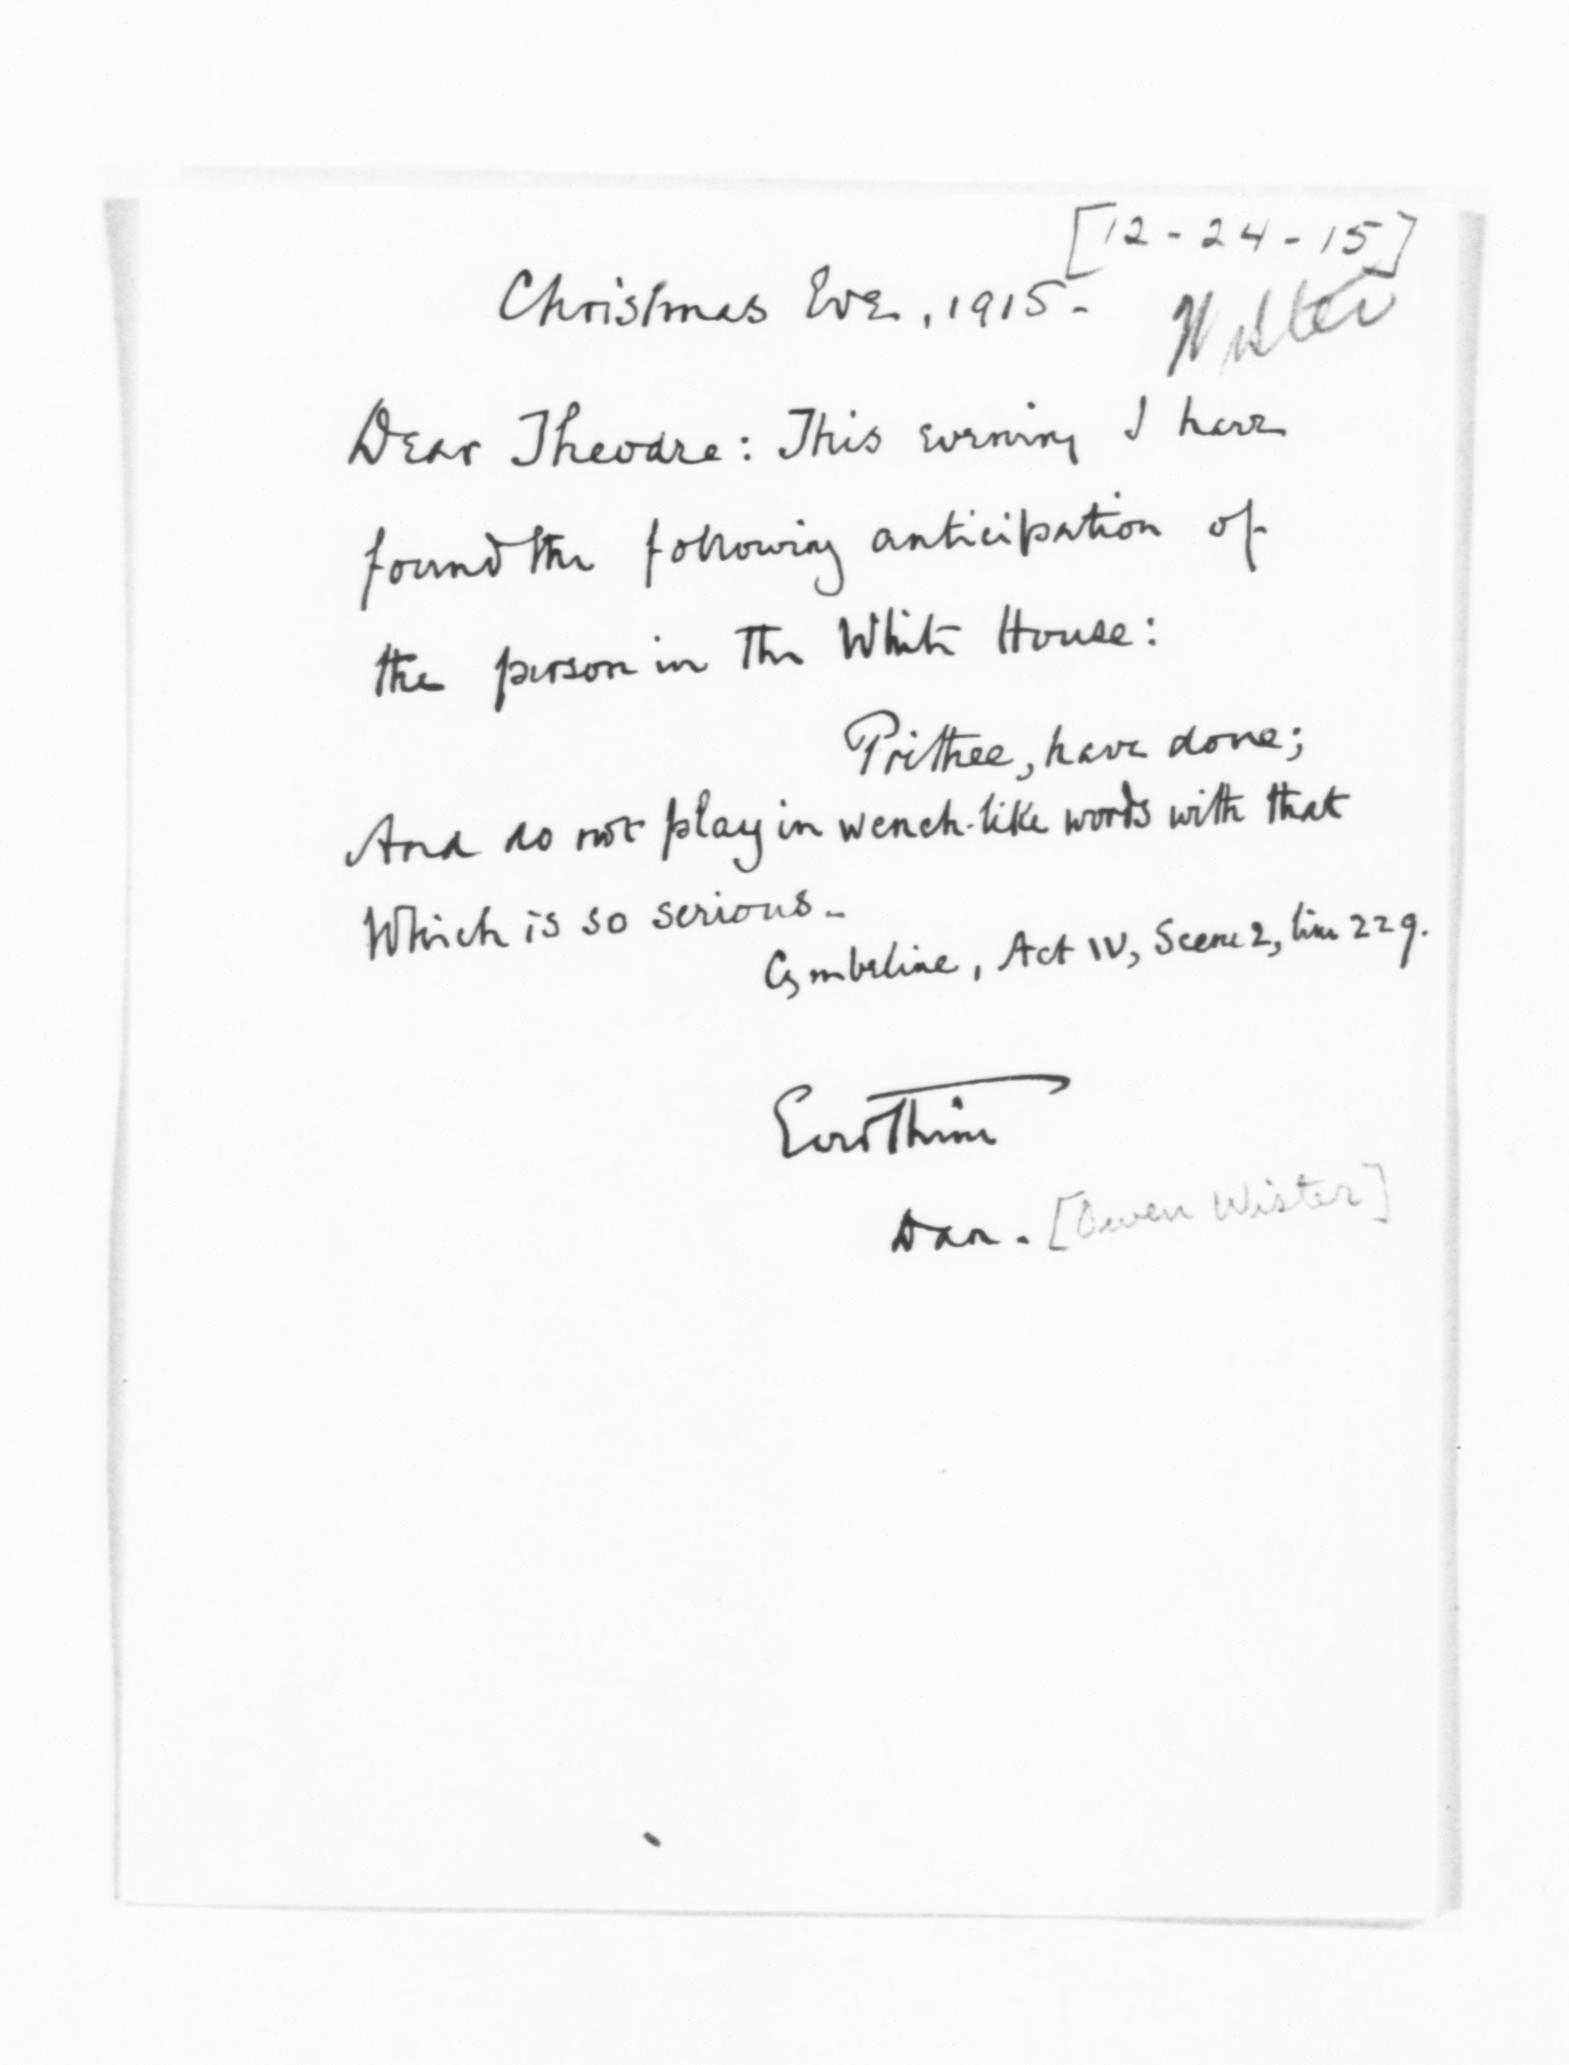 [12-24-15]
Christmas Eve, 1915-
Wister
Dear Theodore: This evening I have
found the following anticipation of
the person in the White House:
Prithee, have done;
And do not play in wench-like words with that
Which is so serious-
Cymbeline, Act IV, Scene 2, line 229.
Ever Thine
Dan. [Owen Wister]